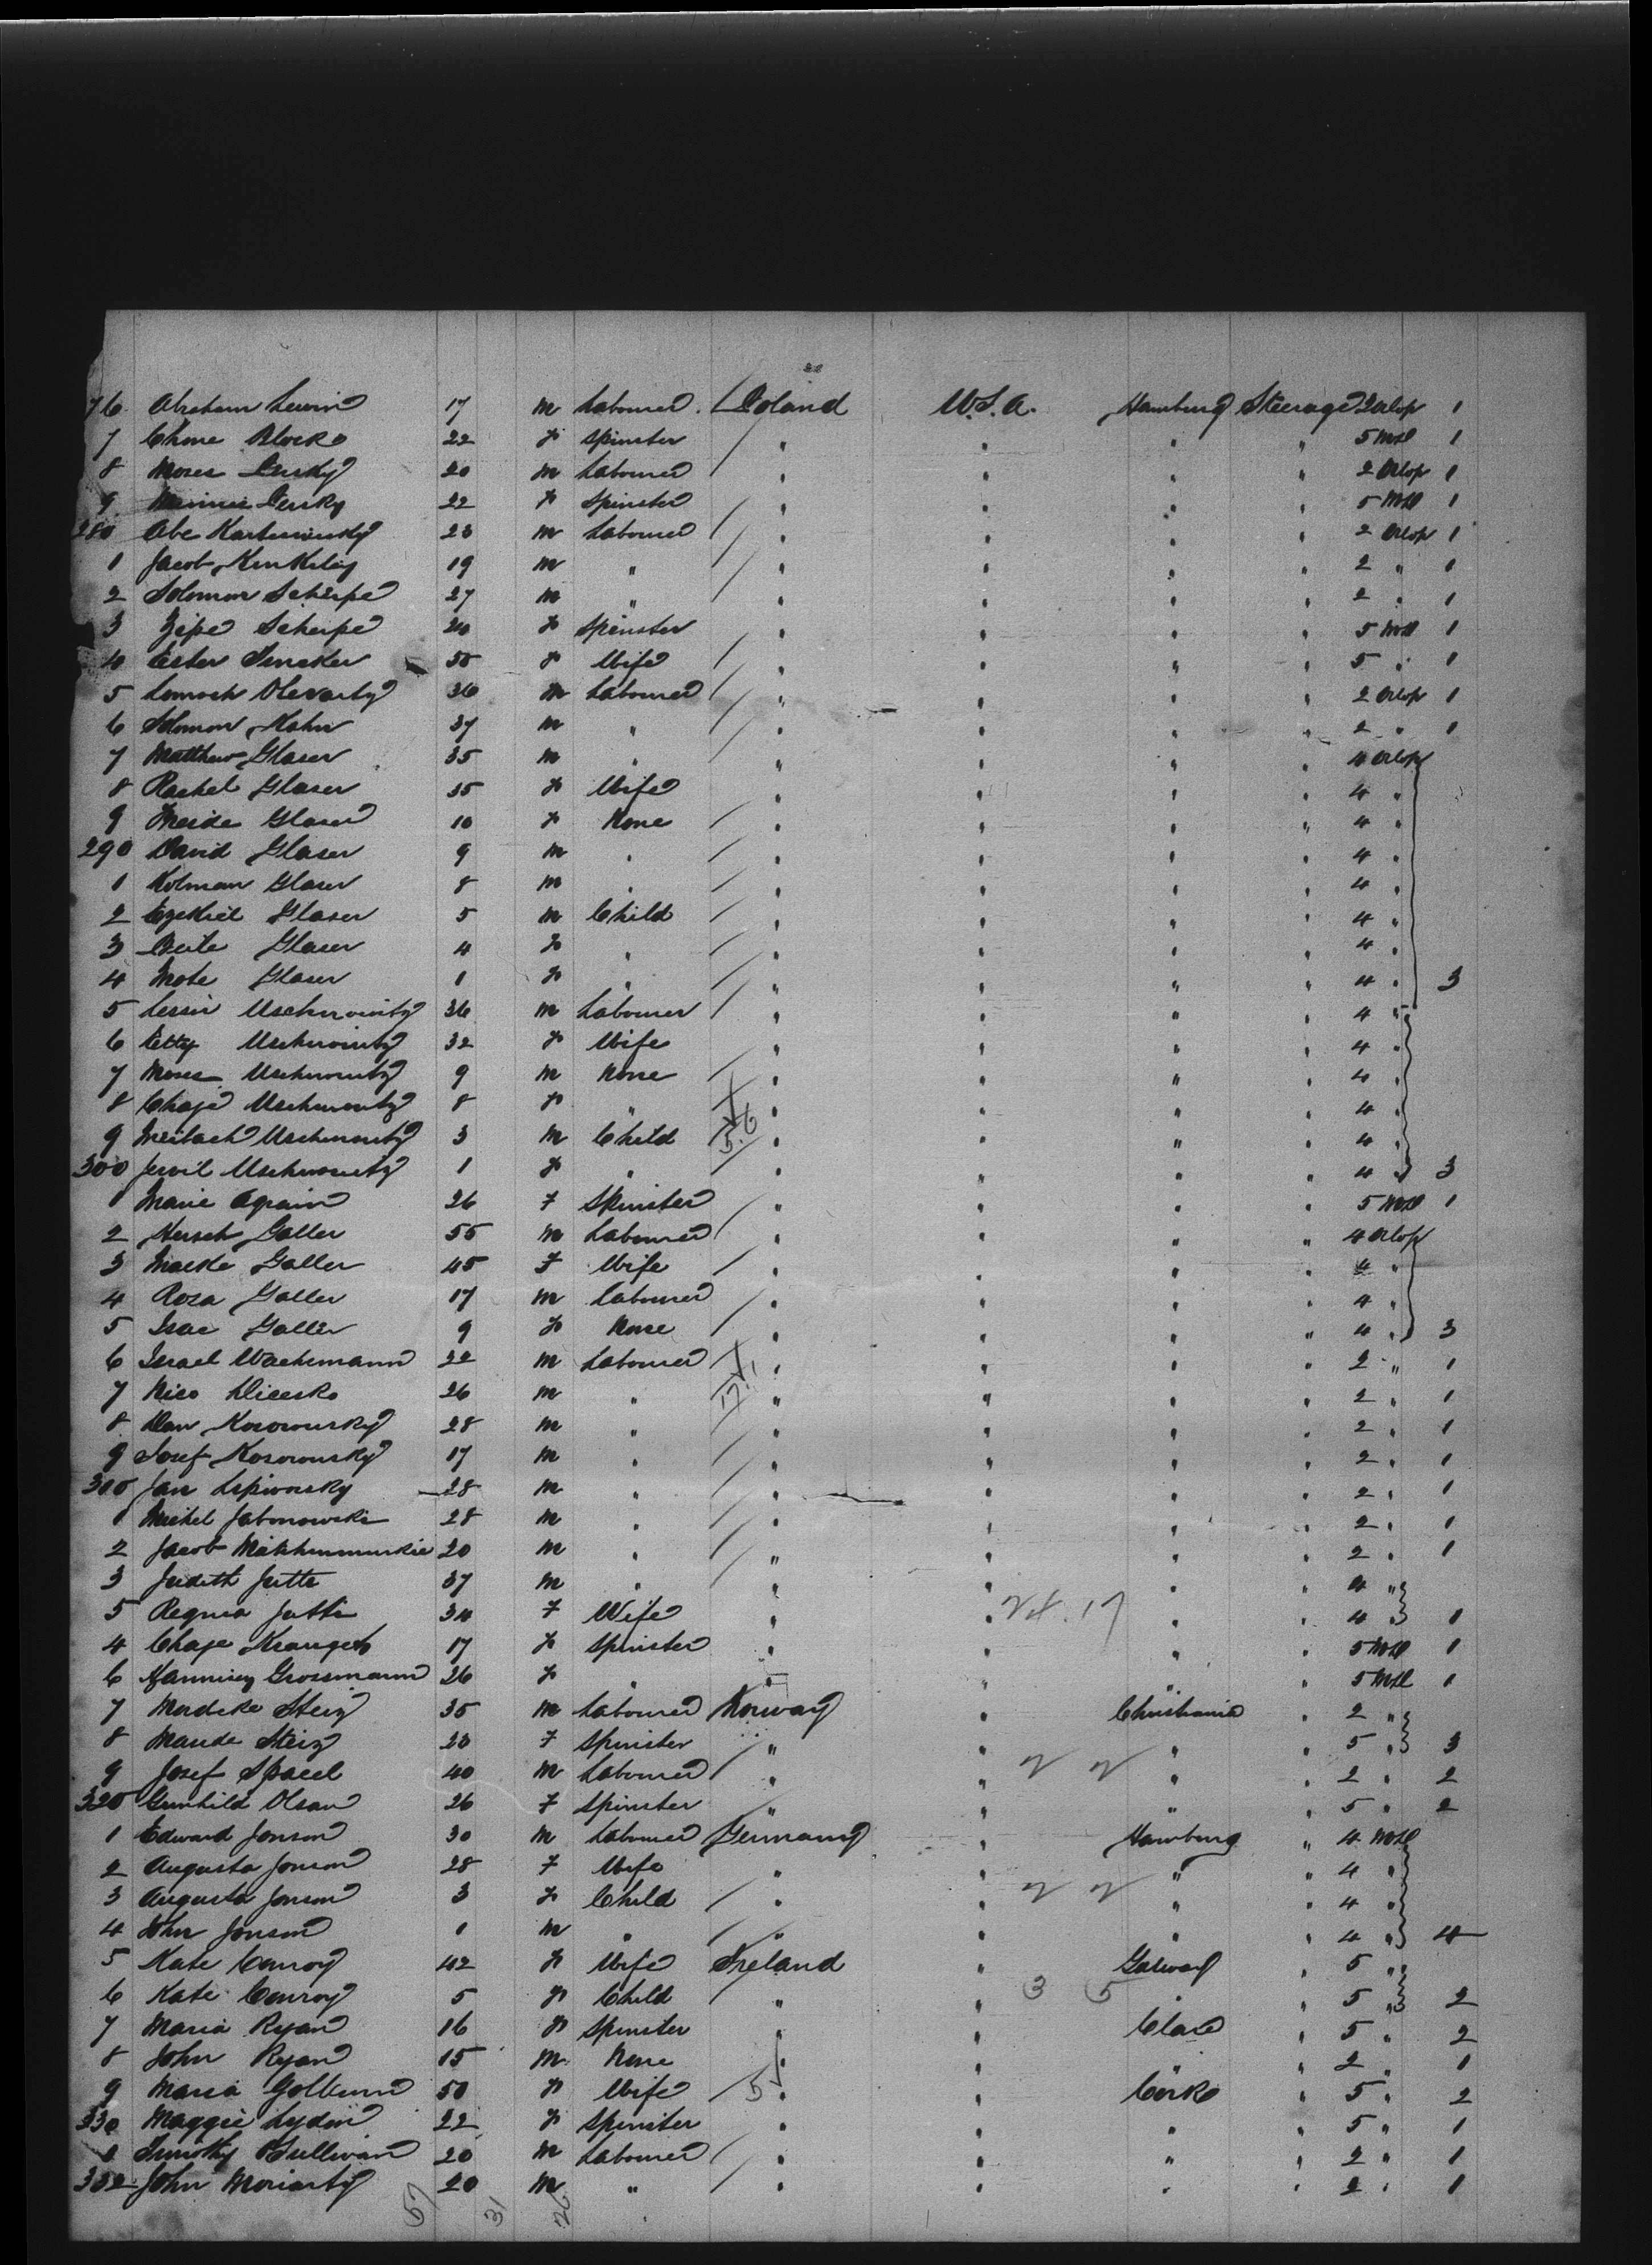 76 Abraham Lewin 17 m Labourer Poland U.S.A. Hamburg Steerage 2 Orlop 1
7 Chone Blocko 22 f Spinster " " " " 5 Mdl 1
8 Moses 20 m Labourer " " " " 2 Orlop 1
9 Minnie 22 f Spinster " " " " 5 Mdl 1
280 Abe 23 m Labourer " " " " 2 Orlop 1
1 Jacob 19 m " " " " " 2 " 1
2 Solomon Scherpe 27 m " " " " " 2 " 1
3 Zipe Scherpe 20 f Spinster " " " " 5 Mdl 1
4 Ester 55 f Wife " " " " 5 " 1
5 36 m Labourer " " " " 2 Orlop 1
6 Solomon Kahn 37 m " " " " " 2 " 1
7 Matthew Glaser 35 m " " " " " 4 Orlop
8 Rachel Glaser 35 f Wife " " " " 4 "
9 Meide Glaser 10 f None " " " " 4 "
290 David Glaser 9 m " " " " " 4 "
1 Kolman Glaser 8 m " " " " " 4 "
2 Ezekiel Glaser 5 m Child " " " " 4 "
3 Beile Glaser 4 f " " " " " 4 "
4 Mote Glaser 1 f " " " " " 4 " 3
5 Lessir Uschnowitz 36 m Labourer " " " " 4 "
6 Etty Uschnowitz 32 f Wife " " " " 4 "
7 Moses Uschnowitz 9 m None " " " " 4 "
8 Chaje Uschnowitz 8 f " " " " " 4 "
9 Uschnowitz 3 m Child 5.6 " " " " 4 "
300 Uschnowitz 1 f " " " " " 4 " 3
1 Marie Apain 26 f Spinster " " " " 5 Mdl 1
2 Hersch Galler 55 m Labourer " " " " 4 Orlop
3 Maeke Galler 45 f Wife " " " " 4 "
4 Rosa Galler 17 m Labourer " " " " 4 "
5 Isac Galler 9 f None " " " " 4 " 3
6 Israel Wachsmann 22 m Labourer " " " " 2 " 1
7 Nico 26 m " " " " " 2 " 1
8 Dan Kosorowsky 28 m " " " " " 2 " 1
9 Josef Kosorowsky 17 m " " " " " 2 " 1
310 Jan 28 m " " " " " 2 " 1
1 Michel Jabonowski 28 m " " " " " 2 " 1
2 Jacob 20 m " " " " " 2 " 1
3 Judith Jutte 37 m " " " " " 4 "
5 Regina Jutte 34 f Wife " " 24.17 " " 4 " 1
4 Chaje 17 f Spinster " " " " 5 Mdl 1
6 Grossmann 26 f " " " " " 5 Mdl 1
7 Mordeke Steiz 35 m Labourer Norway " Christiania " 2 "
8 Maude Steiz 23 f Spinster " " " " 5 " 3
9 Josef Spacel 40 m Labourer " " 2 2 " " 2 " 2
320 Gunhild Olsan 26 f Spinster " " " " 5 " 2
1 Edward Jonson 30 m Labourer Germany " Hamburg " 4 Mdl
2 Augusta Jonson 28 f Wife " " " " 4 "
3 Augusta Jonson 3 f Child " " 2 2 " " 4 "
4 John Jonson 1 m " " " " " 4 " 4
5 Kate Conroy 42 f Wife Ireland " Galway " 5 "
6 Kate Conroy 5 f Child " " 3 5 " " 5 " 2
7 Maria Ryan 16 f Spinster " " Clare " 5 " 2
8 John Ryan 15 m None " " " " 2 " 1
9 Maria 50 f Wife 5 " " Cork " 5 " 2
330 Maggie Lydon 22 f Spinster " " " " 5 " 1
1 Timothy OSullivan 20 m Labourer " " " " 2 " 1
332 John Moriarty 20 m " " " " " 2 " 1
57 31 26